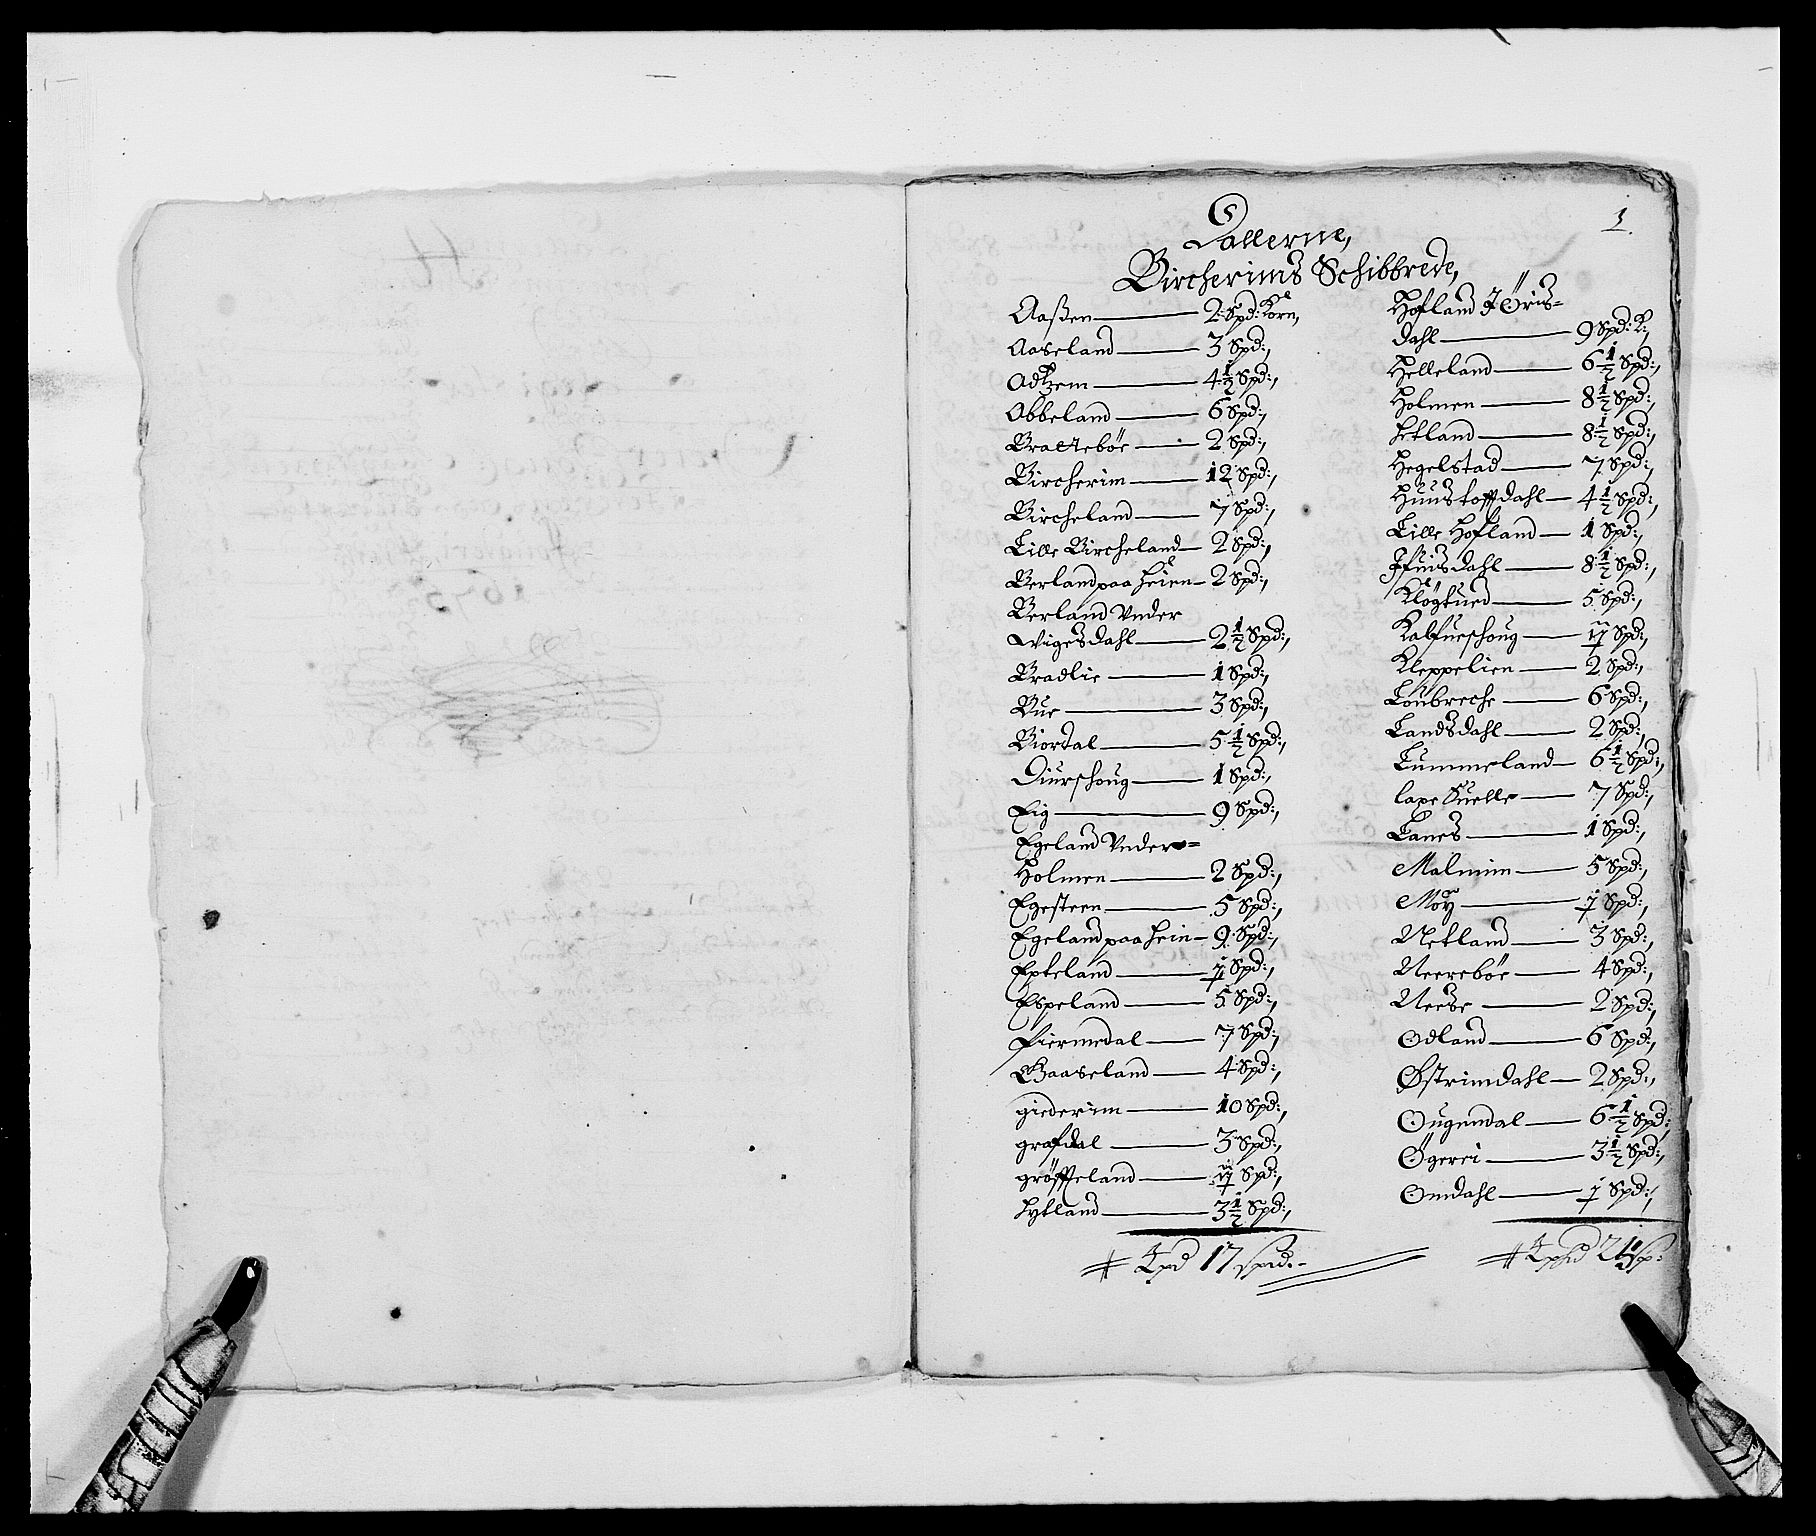 1.
Dallerne,
Bircherims Schibbrede,
Aaßen — 2 Spd: Korn,
Aaseland — 3 Spd:,
Adtzem — 4 1/2 Spd:,
Abbeland — 6 Spd:,
Bratteböe — 2 Spd:,
Bircherim — 12 Spd:,
Bircheland — 7 Spd:,
Lille Bircheland — 2 Spd:,
Berland paa heien — 2 Spd:,
Berland Vnder
Wigesdahl — 2 1/2 Spd:,
Bradlie — 1 Spd:,
Bue — 3 Spd:,
Biordal — 5 1/2 Spd:,
Diurshoug — 1 Spd:,
Eig — 9 Spd:,
Egeland Vnder=
Holmen — 2 Spd:,
Egesteen — 5 Spd:,
Egeland paa hein — 9 Spd:,
Epteland — Spd:,
Espeland — 5 Spd:,
fiermedal — 7 Spd:,
Gaaseland — 4 Spd:,
giederim — 10 Spd:,
grafdal — 3 Spd:,
gröffteland — Spd:,
hytland — 3 1/2 Spd:,
17 spd.
Hofland I Öris=
dahl — 9 Spd: K:,
Helleland — 6 1/2 Spd:,
Holmen — 8 1/2 Spd:,
hetland — 8 1/2 Spd:,
Hegelstad — 7 Spd:,
Huustofftdahl — 4 1/2 Spd:,
Lille Hofland — 1 Spd:,
Ifuisdahl — 8 1/2 Spd:,
Klögtued — 5 Spd:,
Kalfueshoug — Spd:,
Kleppelien — 2 Spd:,
Loubreche — 6 Spd:,
Landsdahl — 2 Spd:,
Lummeland — 6 1/2 Spd:,
laxe Kuelle — 7 Spd:,
Lanes — 1 Spd:,
Malmim — 5 Spd:,
Moy — Spd:,
Netland — 3 Spd:,
Neereböe — 4 Spd:,
Neese — 2 Spd:,
Odland — 6 Spd:,
Østrimdahl — 2 Spd:,
Ougendal — 6 1/2 Spd:,
Ögerei — 3 1/2 Spd:,
Omdahl — Spd:,